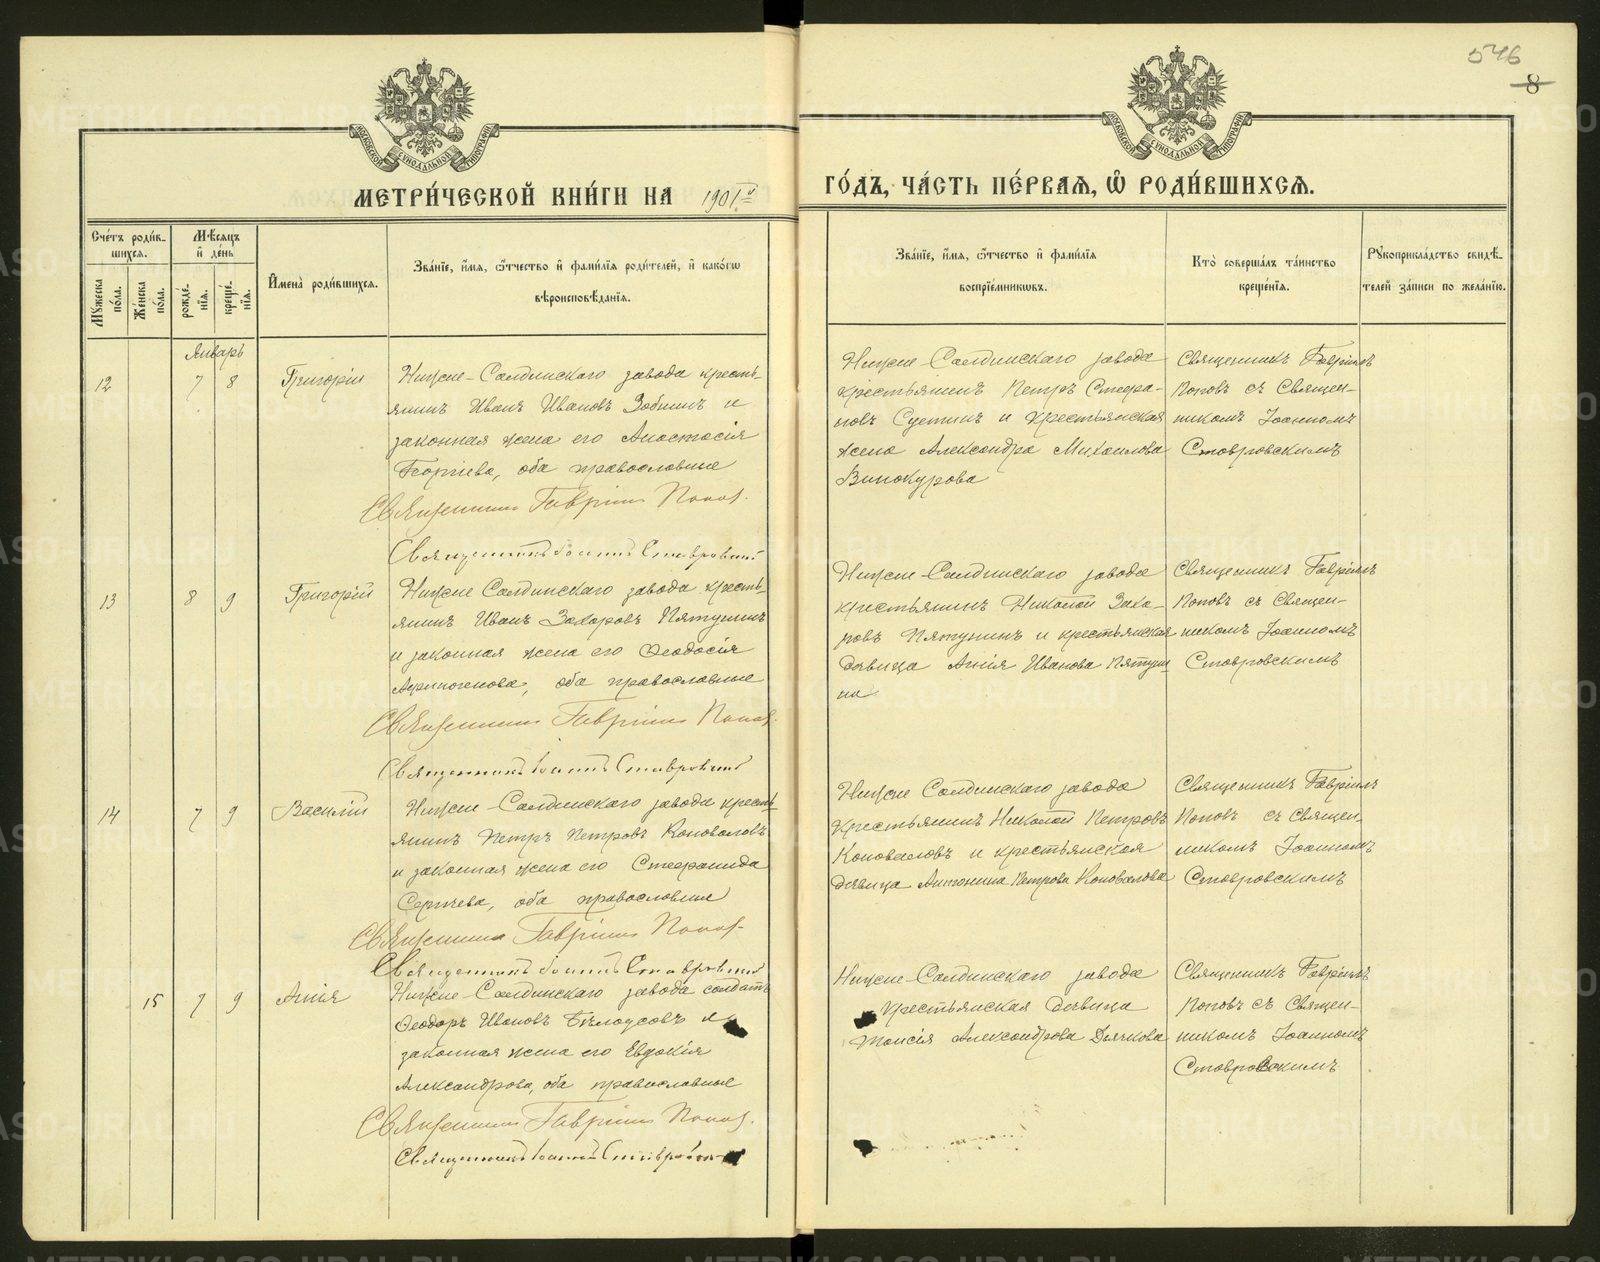 546
8
МОСКОВСКОЙ СѴНОДАЛЬНОЙ ТИПОГРАФІИ
МОСКОВСКОЙ СѴНОДАЛЬНОЙ ТИПОГРАФІИ
МЕТРИ́ЧЕСКОЙ КНИ́ГИ НА 1901й
ГО́ДЪ, ЧА́СТЬ ПЕ́РВАѦ, Ѡ҆ РОДИ́ВШИХСѦ.
Сче́тъ роди́в-
шихсѧ.
Мꙋжеска по́ла.
Же́нска по́ла.
Мѣ́сѧцъ
и҆ де́нь
рожде́-
нїѧ.
креще́-
нїѧ.
И҆мена̀ роди́вшихсѧ.
Зва́нїе, и҆́мѧ, ѻ҆́тчество и҆ фами́лїѧ роди́телей, и҆ како́гѡ
вѣроисповѣ́данїѧ.
Зва́нїе, и҆́мѧ, ѻ҆́тчество и҆ фами́лїѧ
воспрїе́мникѡвъ.
Кто̀ соверша́лъ та́инство
креще́нїѧ.
Рꙋкоприкла́дство свидѣ́-
телей за́писи по жела́нїю.
Январь
12 7 8 Григорій
Нижне-Салдинскаго завода кресть-
янинъ Иванъ Ивановъ Зобнинъ и
законная жена его Анастасія
Георгіева, оба православные
Священникъ Гавріилъ Попов.
Священникъ Іоаннъ Ставровскій
Нижне-Салдинскаго завода
крестьянинъ Петръ Стефа-
новъ Суетинъ и крестьянская
жена Александра Михаилова
Винокурова
Священникъ Гавріилъ
Поповъ съ Священ-
никомъ Іоанномъ
Ставровскимъ
13 8 9 Григорій
Нижне Салдинскаго завода кресть-
янинъ Иванъ Захаровъ Пятунинъ
и законная жена его Ѳеодосія
Аѳиногенова, оба православные
Священникъ Гавріилъ Попов.
Священникъ Іоаннъ Ставровскій
Нижне-Салдинскаго завода
крестьянинъ Николай Заха-
ровъ Пятунинъ и крестьянская
дѣвица Агнія Иванова Пятуни
на
Священникъ Гавріилъ
Поповъ съ Священ-
никомъ Іоанномъ
Ставровскимъ
14 7 9 Василій
Нижне-Салдинскаго завода кресть-
янинъ Петръ Петровъ Коноваловъ
и законная жена его Стефанида
Сергѣева, оба православные
Священникъ Гавріилъ Попов.
Священникъ Іоаннъ Ставровскій
Нижне Салдинскаго завода
крестьянинъ Николай Петровъ
Коноваловъ и крестьянская
дѣвица Антонина Петрова Коновалова
Священникъ Гавріилъ
Поповъ съ Священ-
никомъ Іоанномъ
Ставровскимъ
15 7 9 Агнія
Нижне-Салдинскаго завода солдатъ
Ѳеодоръ Ивановъ Бѣлоусовъ и
законная жена его Евдокія
Александрова, оба православные
Священникъ Гавріилъ Попов.
Священникъ Іоаннъ Ставровскій
Нижне-Салдинскаго завода
крестьянская дѣвица
Таисія Александрова Дьячкова
Священникъ Гавріилъ
Поповъ съ Священ-
никомъ Іоанномъ
Ставровскимъ
METRIKI.GASO-URAL.RU